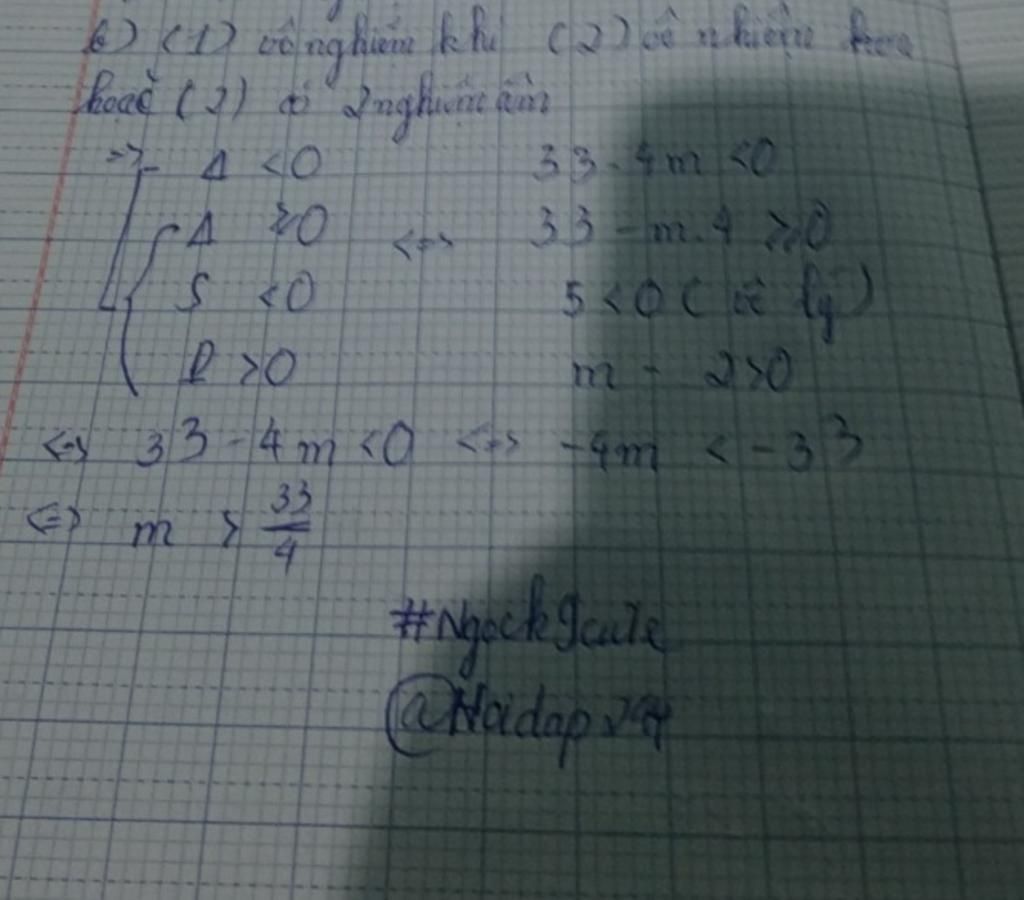 (1) vô nghiệm khi (2) vô nhiệm
hoặc (2) có 2 nghiệm âm
=> Δ < 0 33 - 4m < 0
Δ ≥ 0 <=> 33 - m.4 ≥ 0
S < 0 5 < 0 (vô lý)
P > 0 m - 2 > 0
<=> 33 - 4m < 0 <=> -4m < -33
<=> m > 33/4
#Ngock9cute
@Hoidap247